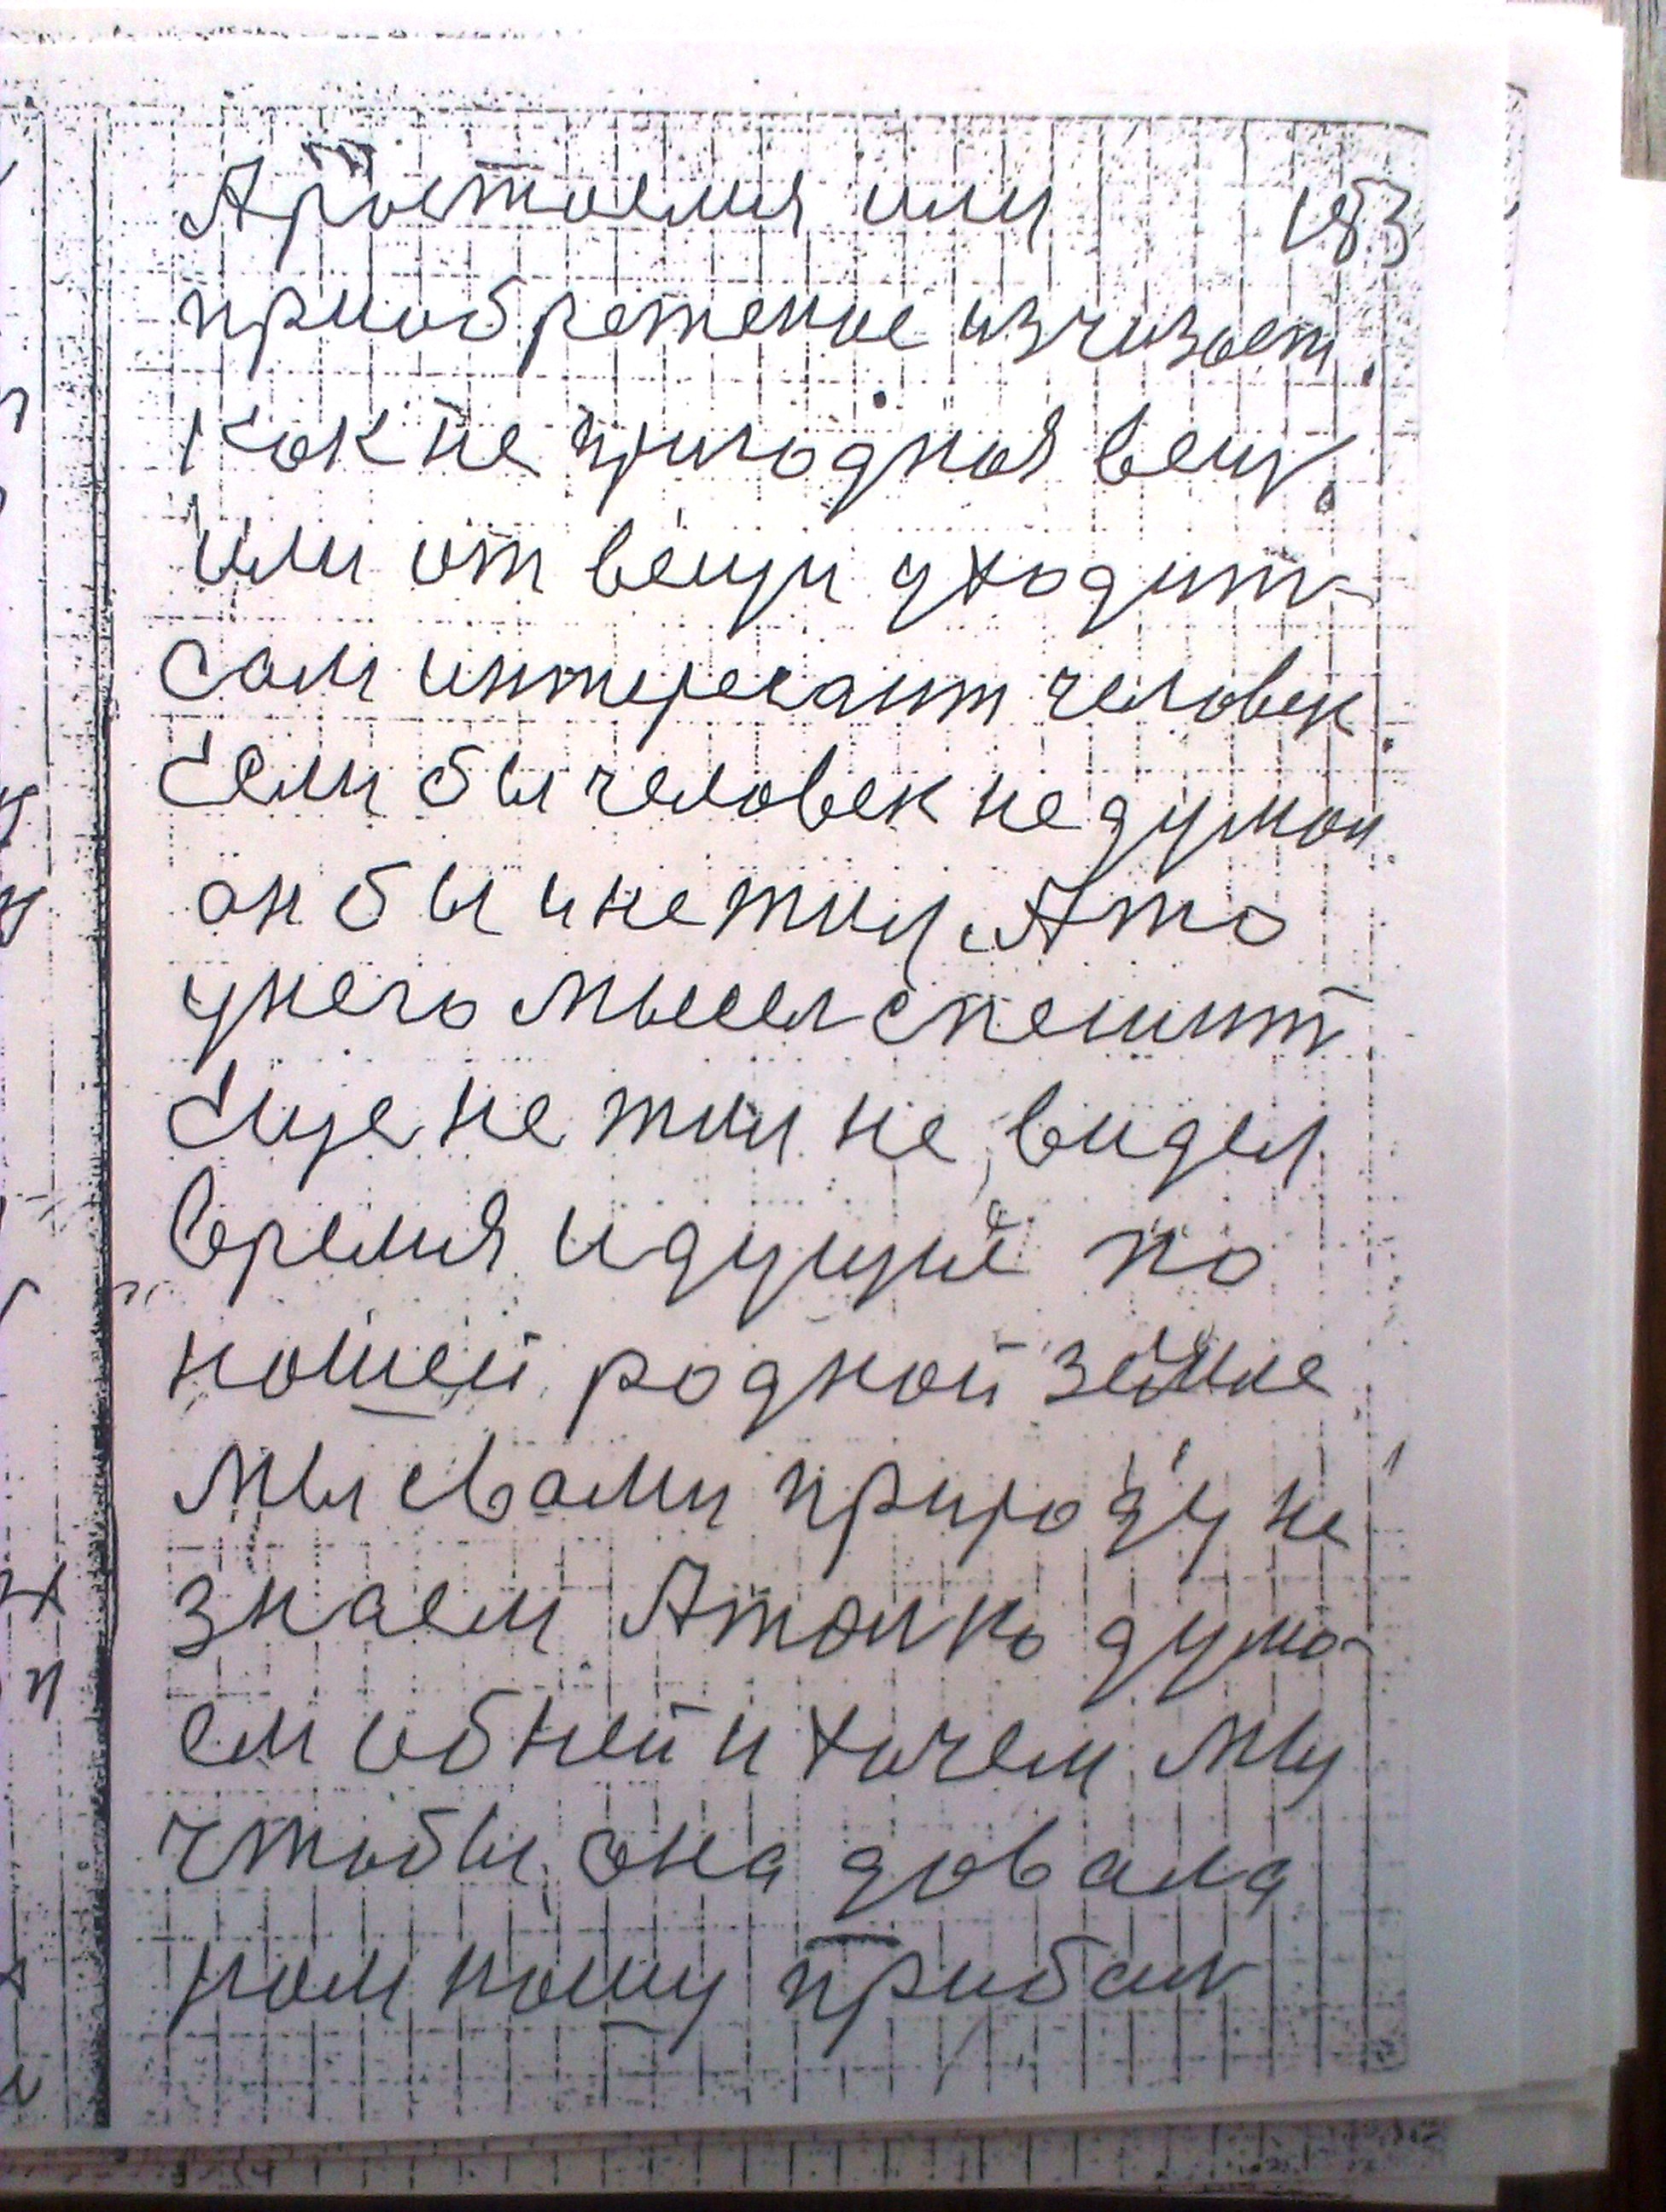 А ростоемия или 183
приобретение изчизает.
Как не пригодная вещ.
Или от вещи уходит
сам интересант человек.
Если бы человек не думал
он бы и не жил. А то
у него мысел спешит
Еще не жил не видел
время идущие по
нашей родной земле
Мы с вами природу не
знаем А толко дума-
ем об ней и хочем мы
чтобы она довала
нам нашу прибал